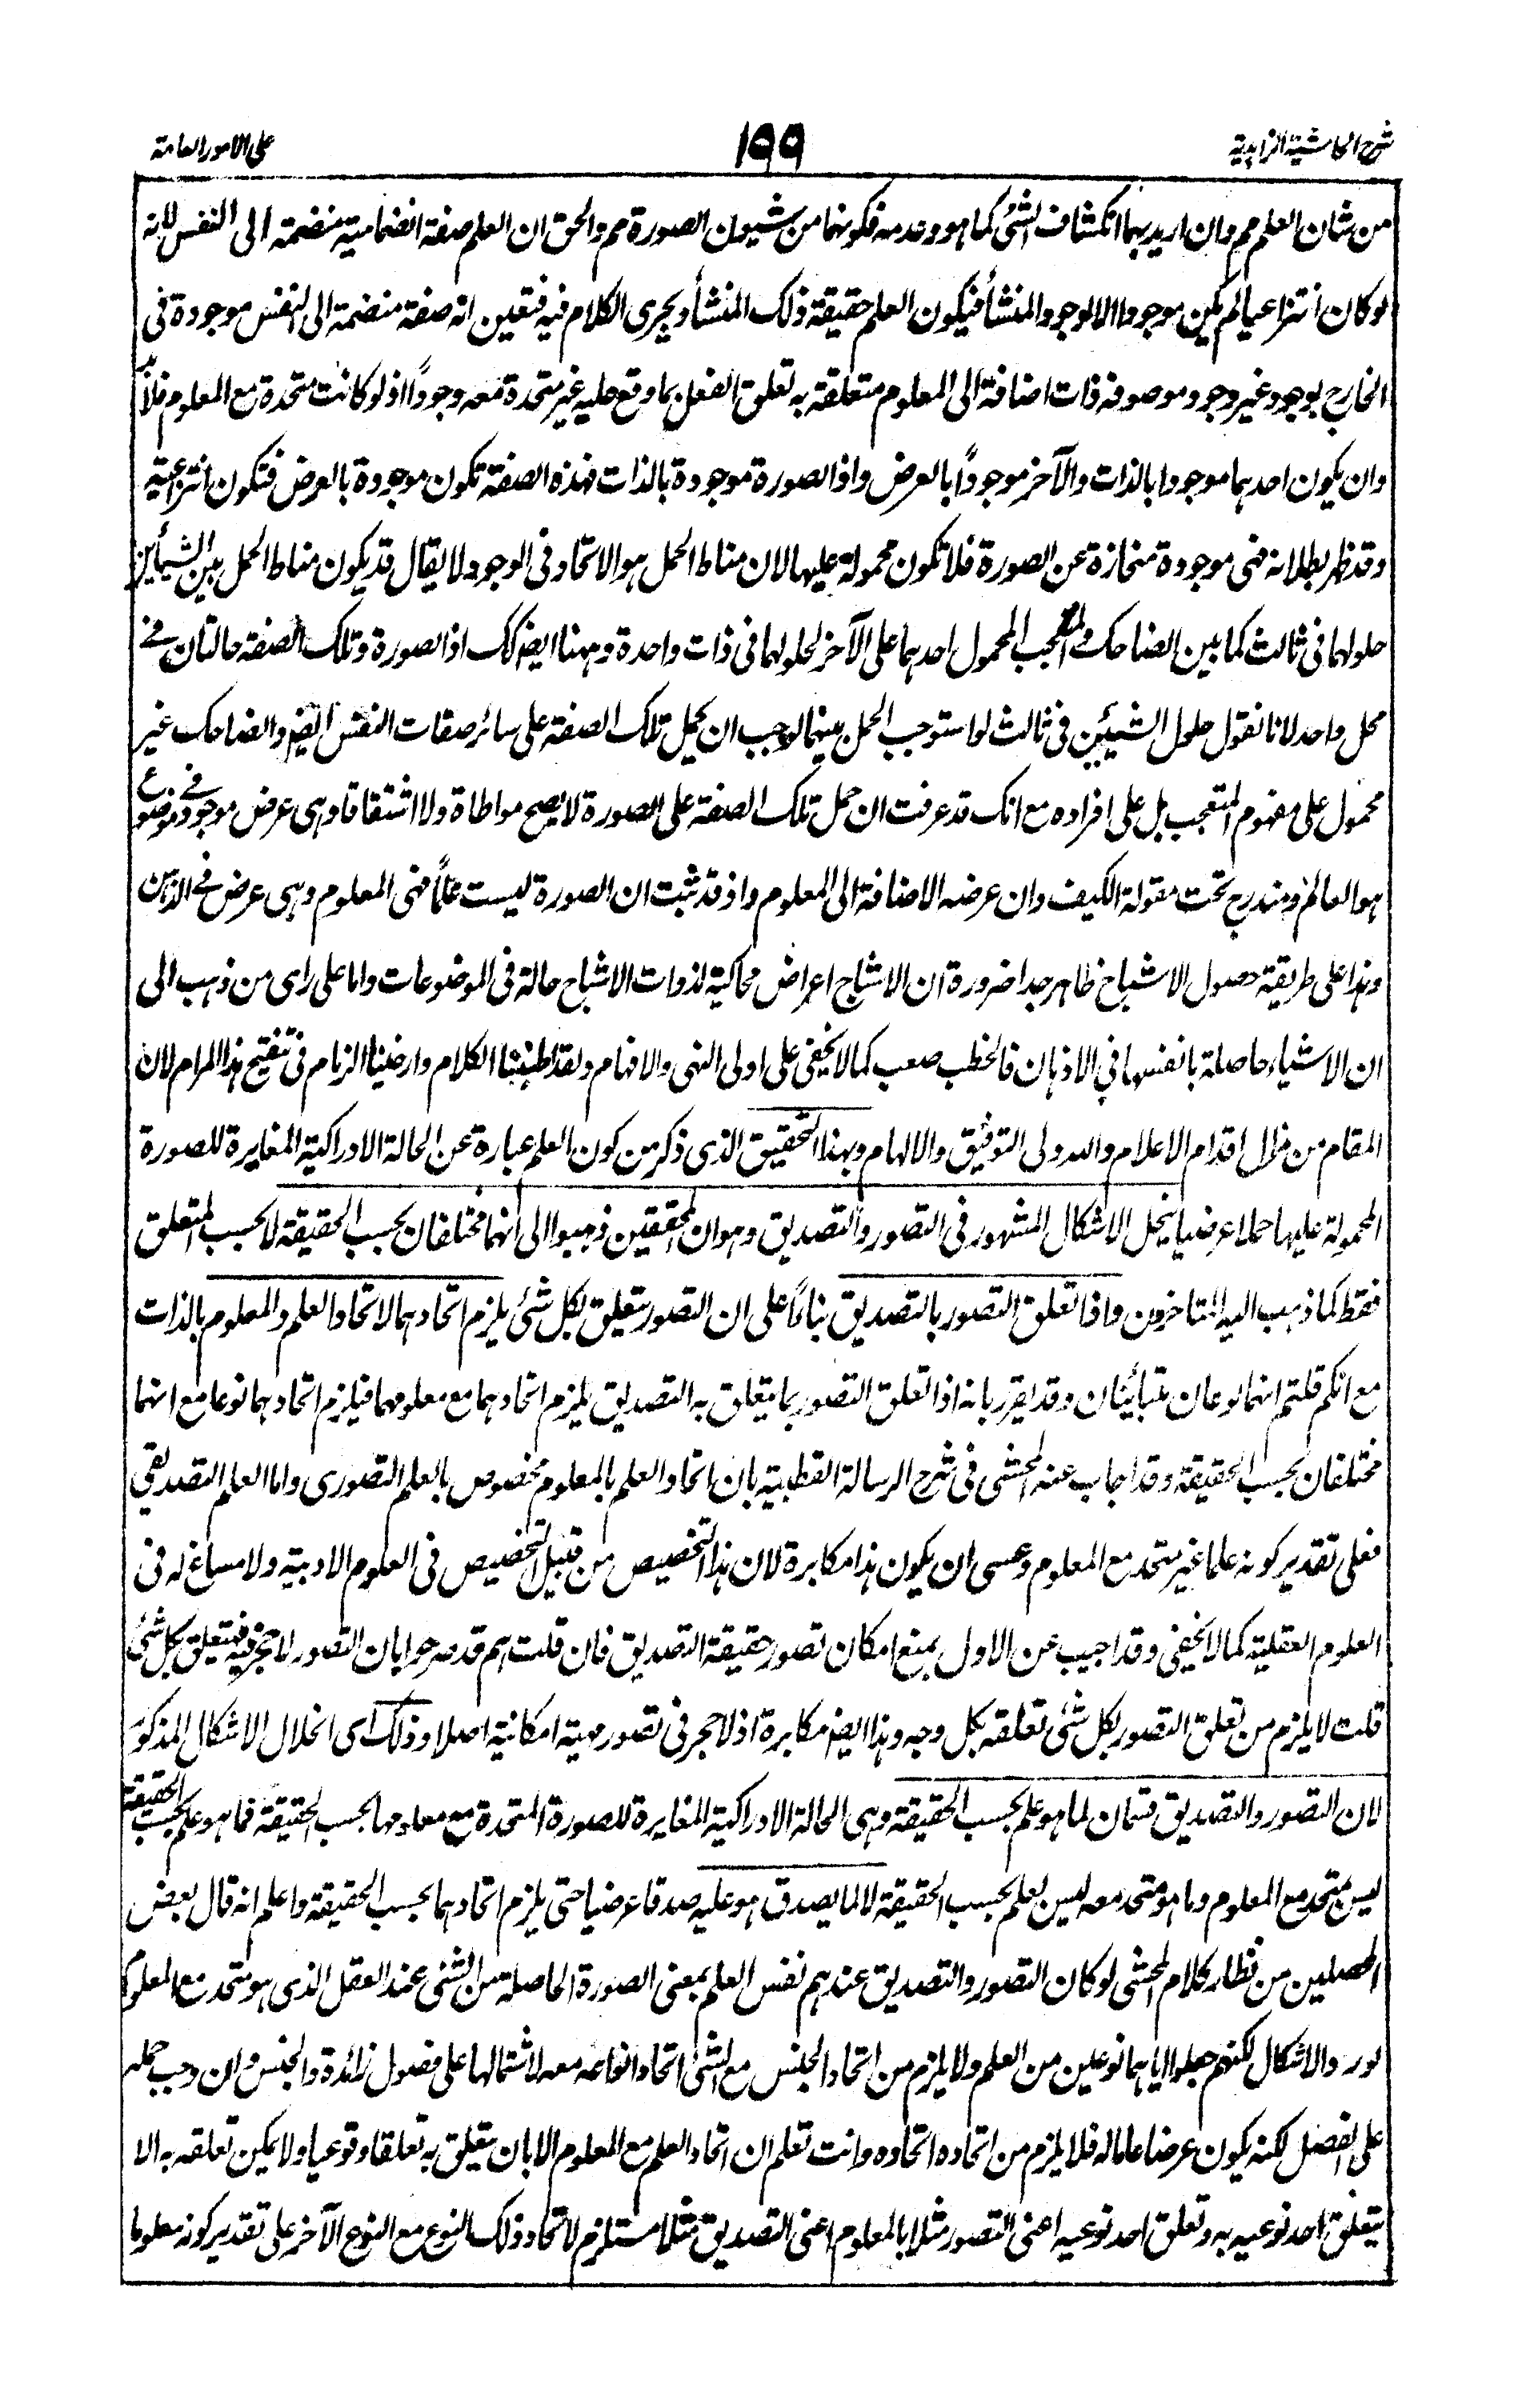 شرح الحاشية الزاهدية
١٩٩
على الامور العامة
من شان العلم مم وان اريد بهما انكشاف الشئ كما هو وعدمه فكونهما من شيون الصورة مم والحق ان العلم صفة انضمامية منضمة الى النفس لانه
لو كان انتزاعيا لم يكن موجودا الا لوجود المنشأ فيكون العلم حقيقة ذلك المنشأ ويجرى الكلام فيه فتعين انه صفة منضمة الى النفس موجودة فى
الخارج بوجود غير وجود موصوفه ذات اضافة الى المعلوم متعلقة به تعلق الفعل بما وقع عليه غير متحدة معه وجودًا اذ لو كانت متحدة مع المعلوم فلابد
وان يكون احدهما موجودا بالذات والآخر موجودًا بالعرض واذ الصورة موجودة بالذات فهذه الصفة تكون موجودة بالعرض فتكون انتزاعية
وقد ظهر بطلانه فهى موجودة منحازة عن الصورة فلا تكون محمولة عليها لان مناط الحمل هو الاتحاد فى الوجود لا يقال قد يكون مناط الحمل بين الشيئين
حلولهما فى ثالث كما بين الضاحك والمتعجب المحمول احدهما على الآخر لحلولهما فى ذات واحدة وههنا ايضا كك اذ الصورة وتلك الصفة حالتان فى
محل واحد لانا نقول حلول الشيئين فى ثالث لو استوجب الحمل بينهما لوجب ان يحمل تلك الصفة على سائر صفات النفس ايضا والضاحك غير
محمول على مفهوم المتعجب بل على افراده مع انك قد عرفت ان حمل تلك الصفة على الصورة لا يصح مواطاة ولا اشتقاقا وهى عرض موجود فى موضوع
هو العالم ومندرج تحت مقولة الكيف وان عرضه الاضافة الى المعلوم واذ قد ثبت ان الصورة ليست علمًا فهى المعلوم وهى عرض فى الذهن
وهذا على طريقة حصول الاشباح ظاهر جدا ضرورة ان الاشباح اعراض محاكية لذوات الاشباح حالة فى الموضوعات واما على راى من ذهب الى
ان الاشياء حاصلة بانفسها فى الاذهان فالخطب صعب كما لا يخفى على اولى النهى والافهام ولقد اطنبنا الكلام وارخينا الزمام فى تنقيح هذا المرام لان
المقام من مزال اقدام الاعلام والله ولى التوفيق والالهام وبهذا التحقيق الذى ذكر من كون العلم عبارة عن الحالة الادراكية المغايرة للصورة
المحمولة عليها حملا عرضيا ينحل الاشكال المشهور فى التصور والتصديق وهو ان المحققين ذهبوا الى انهما مختلفان بحسب الحقيقة لا بحسب المتعلق
فقط كما ذهب اليه المتاخرون واذا تعلق التصور بالتصديق بناءً على ان التصور يتعلق بكل شئ يلزم اتحادهما لاتحاد العلم والمعلوم بالذات
مع انكم قلتم انهما نوعان متبائنان وقد يقرر بانه اذا تعلق التصور بما يتعلق به التصديق يلزم اتحادهما مع معلومهما فيلزم اتحادهما نوعا مع انهما
مختلفان بحسب الحقيقة وقد اجاب عنه المحشى فى شرح الرسالة القطبية بان اتحاد العلم بالمعلوم مخصوص بالعلم التصورى واما العلم التصديقى
فعلى تقدير كونه علما غير متحد مع المعلوم وعسى ان يكون هذا مكابرة لان هذا التخصيص من قبيل التخصيص فى العلوم الادبية ولا مساغ له فى
العلوم العقلية كما لا يخفى وقد اجيب عن الاول بمنع امكان تصور حقيقة التصديق فان قلت هم قد صرحوا بان التصور لا حجر فيه فيتعلق بكل شئ
قلت لا يلزم من تعلق التصور بكل شئ تعلقه بكل وجه وهذا ايضا مكابرة اذ لا حجر فى تصور مهية امكانية اصلا وذلك اى انحلال الاشكال المذكور
لان التصور والتصديق قسمان لما هو علم بحسب الحقيقة وهى الحالة الادراكية المغايرة للصورة المتحدة مع معلومها بحسب الحقيقة فما هو علم بحسب الحقيقة
ليس متحد مع المعلوم وما هو متحد معه ليس بعلم بحسب الحقيقة لا لما يصدق هو عليه صدقا عرضيا حتى يلزم اتحادهما بحسب الحقيقة واعلم انه قال بعض
المحصلين من نظار كلام المحشى لو كان التصور والتصديق عندهم نفس العلم بمعنى الصورة الحاصلة من الشئ عند العقل الذى هو متحد مع المعلوم
لورد الاشكال لكنهم جعلوا اياهما نوعين من العلم ولا يلزم من اتحاد الجنس مع الشئ اتحاد انواعه معه لاشتمالها على فصول زائدة والجنس وان وجب حمله
على الفصل لكنه يكون عرضا عاما له فلا يلزم من اتحاده اتحاده وانت تعلم ان اتحاد العلم مع المعلوم الا بان يتعلق به تعلقا وقوعيا ولا يمكن تعلقه به الا
بتعلق احد نوعيه به وتعلق احد نوعيه اعنى التصور مثلا بالمعلوم اعنى التصديق مثلا مستلزم لاتحاد ذلك النوع مع النوع الآخر على تقدير كونه معلوما